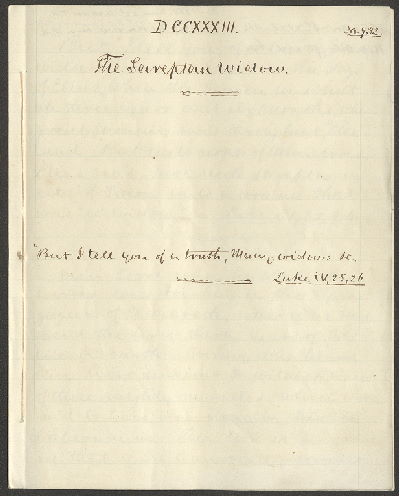 DCCXXXIII.
The Sareptan Widow.
"But I tell you of a truth, Many widows &c.
Luke IV, 25, 26